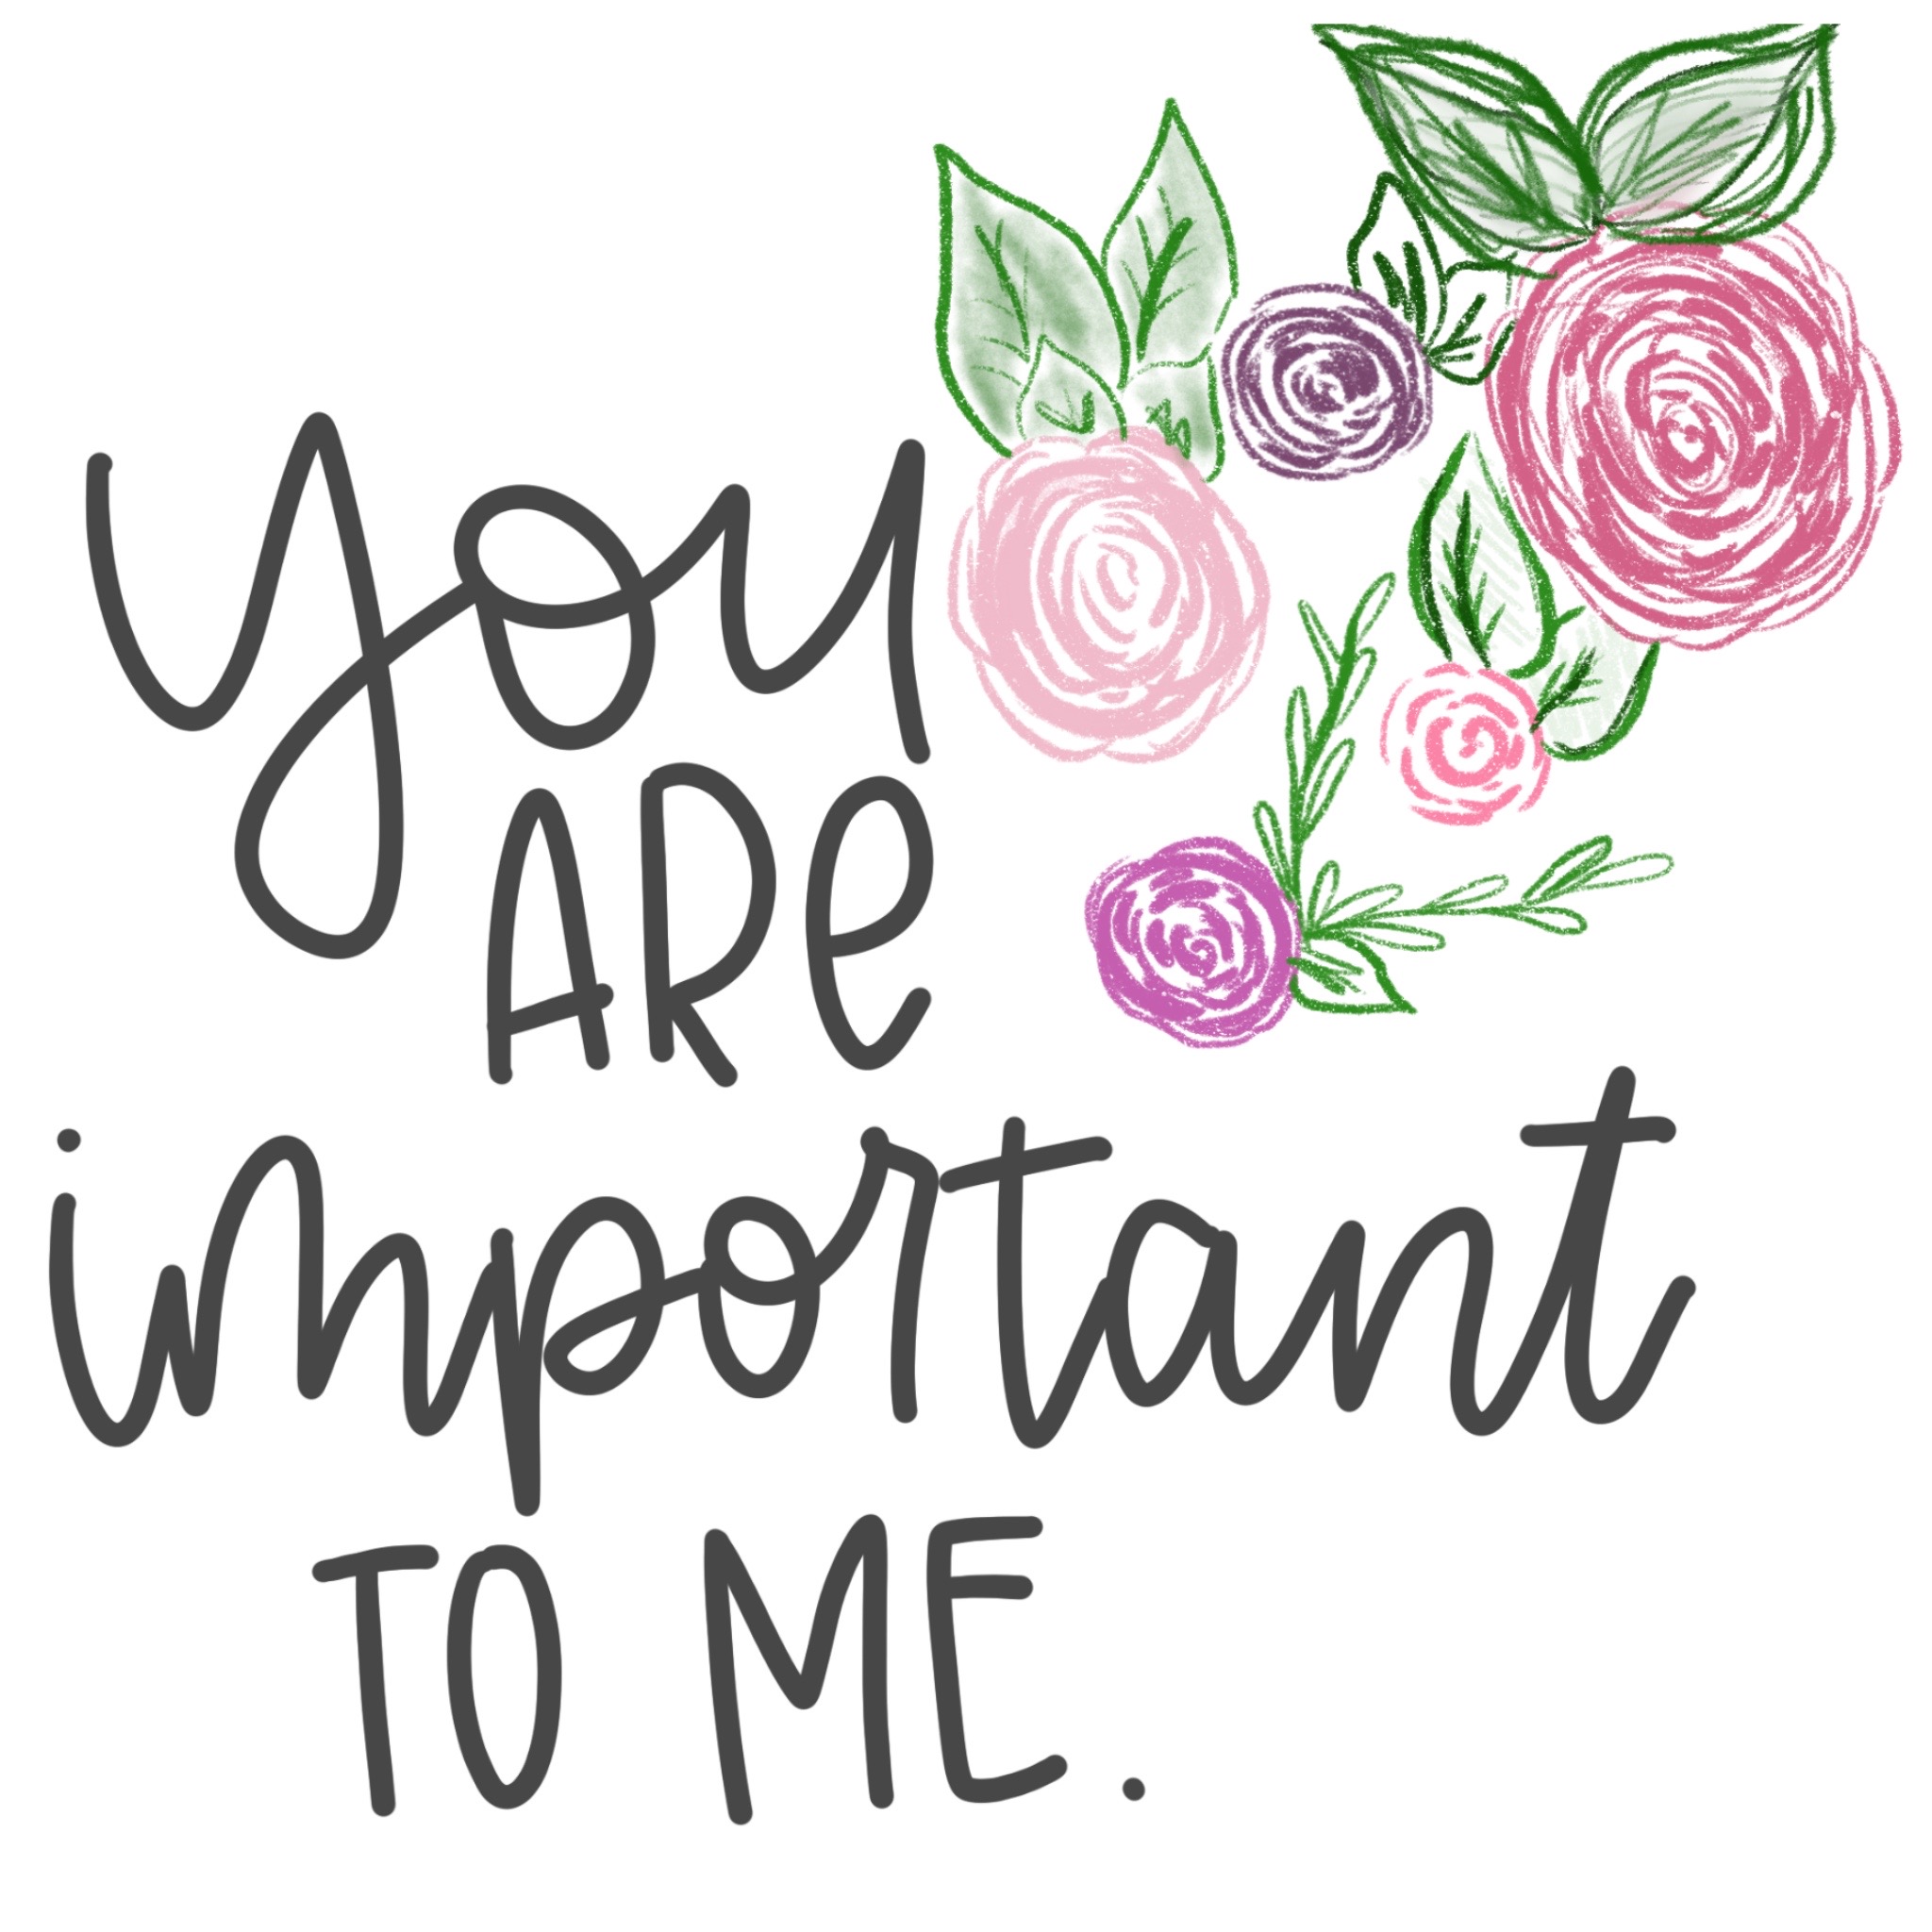 you
ARe
important
TO ME.